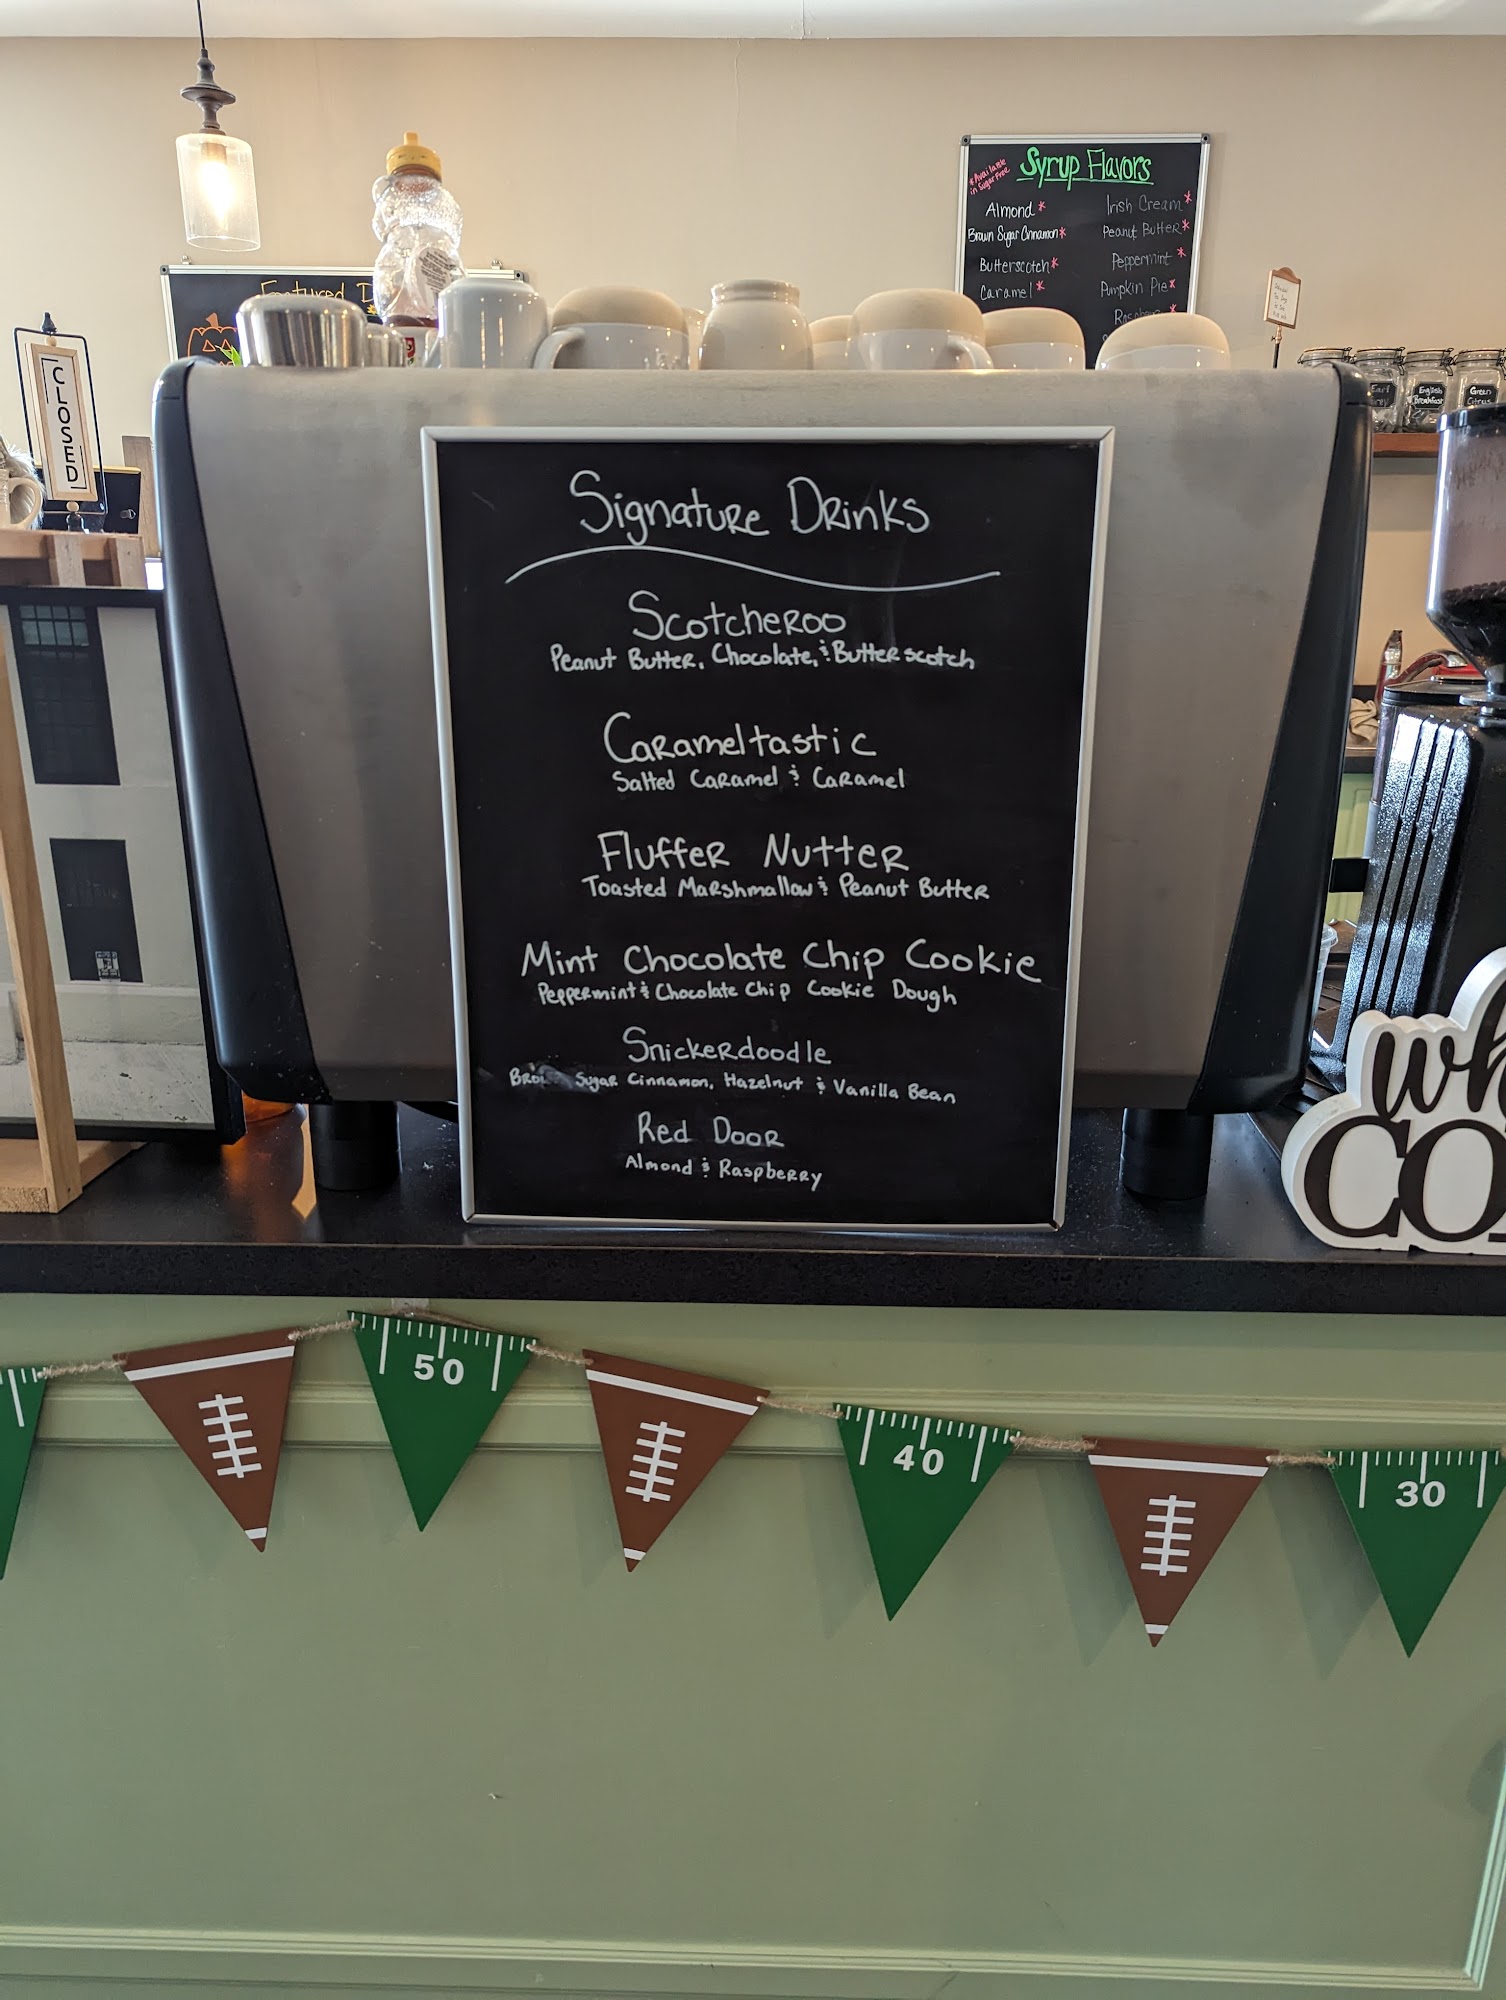 Syrup Flavors
*Available
in Sugar Free
Almond*
Brown Sugar Cinnamon*
Butterscotch*
Caramel*
Irish Cream*
Peanut Butter*
Peppermint*
Pumpkin Pie*
Featured
CLOSED
English
Breakfast
Green
Citrus
Signature Drinks
Scotcheroo
Peanut Butter, Chocolate, & Butterscotch
Carameltastic
Salted Caramel & Caramel
Fluffer Nutter
Toasted Marshmallow & Peanut Butter
Mint Chocolate Chip Cookie
Peppermint & Chocolate Chip Cookie Dough
Snickerdoodle
Sugar Cinnamon, Hazelnut & Vanilla Bean
Red Door
Almond & Raspberry
50
40
30